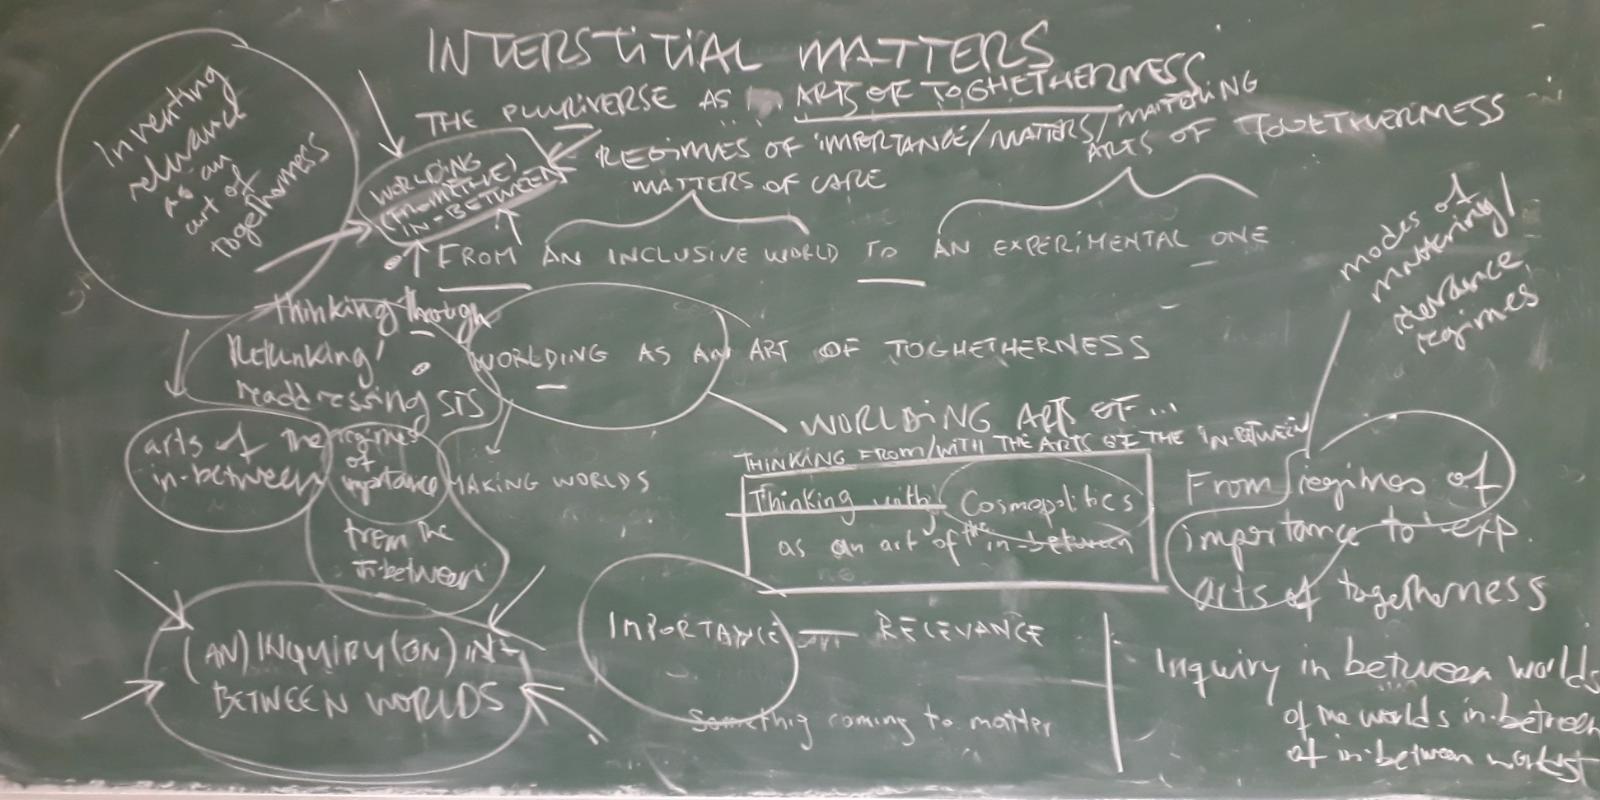 INTERSTITIAL MATTERS
THE PLURIVERSE AS ARTS OF TOGHETHERNESS
REGIMES OF IMPORTANCE/MATTERS/MATTERING
ARTS OF TOGETHERNESS
MATTERS OF CARE
Inventing
relevance
as an
art of
togetherness
WORLDING
IN-BETWEEN
FROM AN INCLUSIVE WORLD TO AN EXPERIMENTAL ONE
modes of
mattering/
relevance
regimes
thinking through
Rethinking/
readdressing STS
WORLDING AS AN ART OF TOGHETHERNESS
WORLDING ARTS OF...
THINKING FROM/WITH THE ARTS OF THE IN-BETWEEN
arts of the
in-between
regimes
of
importance
MAKING WORLDS
from the
in-between
Thinking with Cosmopolitics
as an art of the in-between
From regimes of
importance to exp.
arts of togetherness
(AN) INQUIRY (ON) IN-
BETWEEN WORLDS
IMPORTANCE — RELEVANCE
Somethig coming to matter
Inquiry in between worlds
of the worlds in-between
of in-between